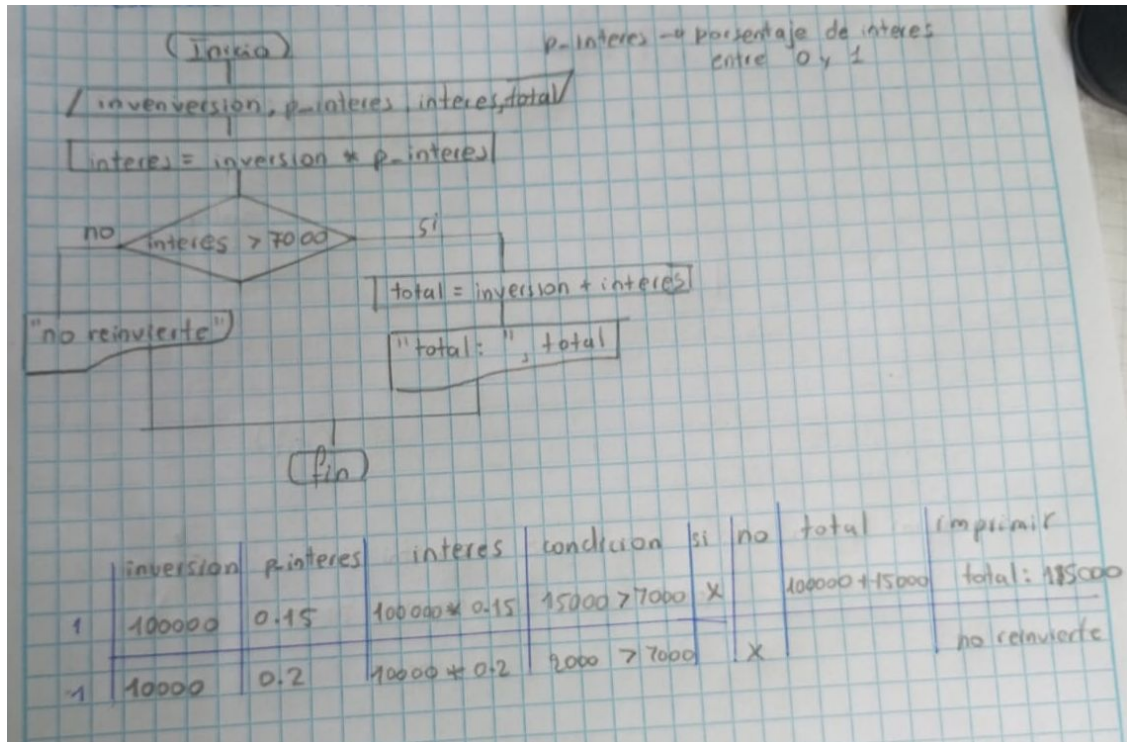 Inicio
p_interes → porsentaje de interes
entre 0 y 1
invenversion, p_interes interes, total
interes = inversion * p_interes
no
interes > 7000
si
total = inversion + interes
"no reinvierte"
"total: ", total
fin
inversion p_interes interes condicion si no total imprimir
1 100000 0.15 100000 * 0.15 15000 > 7000 x 100000 + 15000 total: 115000
1 10000 0.2 10000 * 0.2 2000 > 7000 x no reinvierte